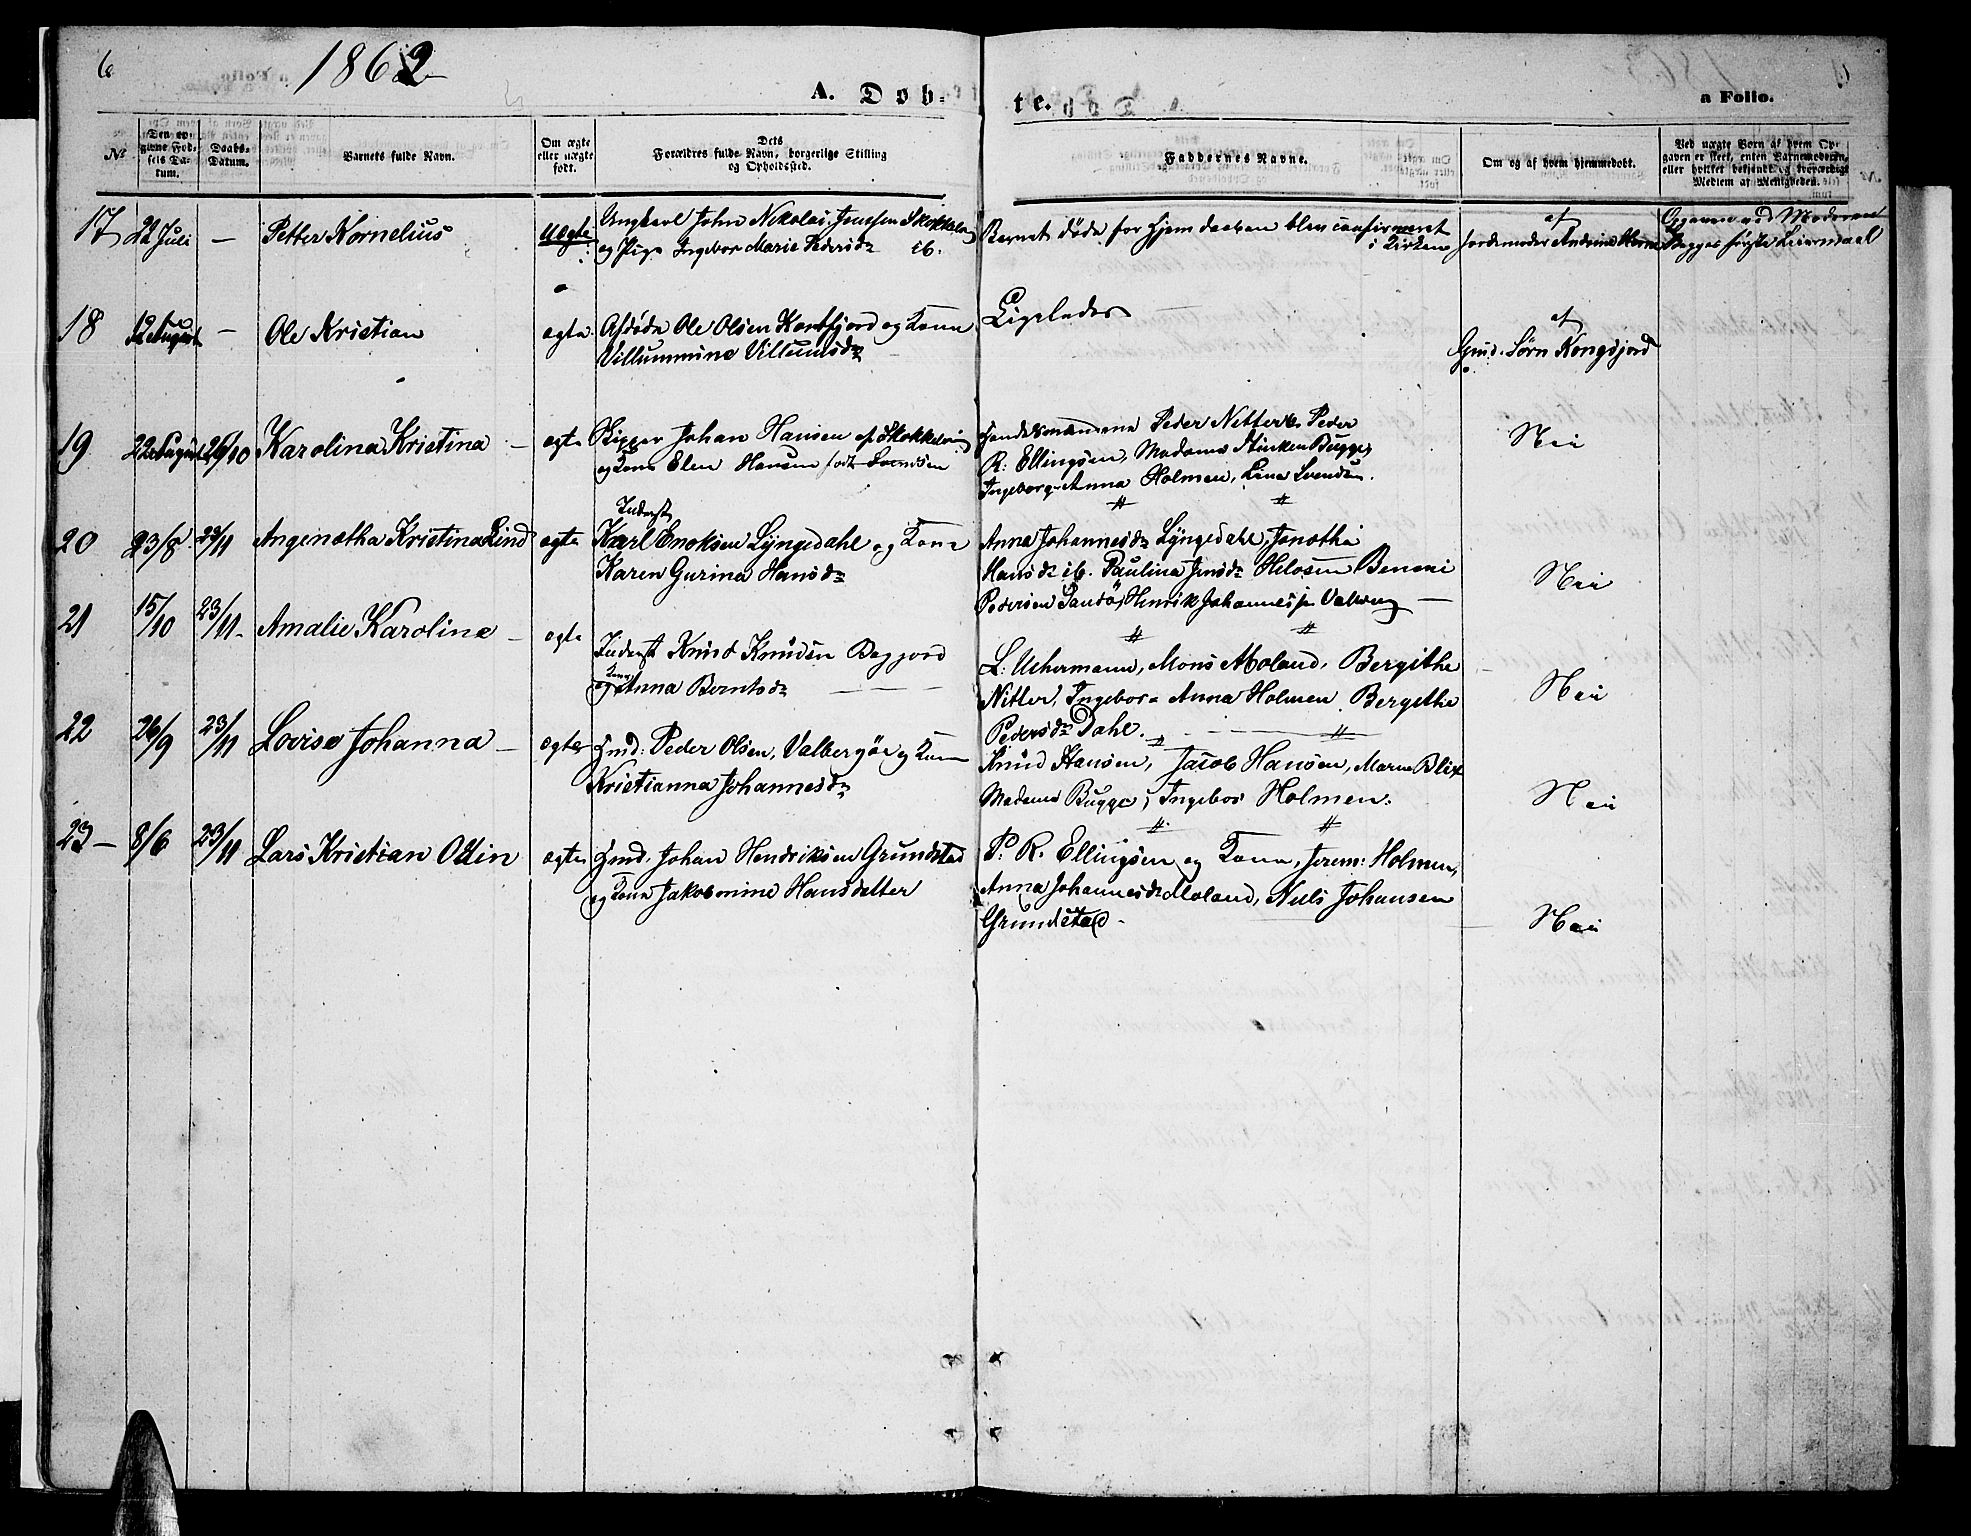 6
1862
A. Døb-
te.
a Folio.
№
Den op-
givne Fød-
sels Da-
tum.
Daabs-
Datum.
Barnets fulde Navn.
Om ægte
eller uægte
født.
Dets
Forældres fulde Navn, borgerlige Stilling
og Opholdssted.
Faddernes Navne.
Om og af hvem hjemmedøbt.
Ved uægte Børn af hvem Op-
gaven er skeet, enten Barnemoderen,
eller hvilket bekjendt og troværdigt
Medlem af Menigheden.
17 22 Juli — Petter Kornelius uægte
Ungkarl John Nikolai Jenssen
og Pige Ingebor Marie Pedersdr ib.
Barnet døde før Hjemdaaben blev confirmeret
i Kirken
af
Jordemoder Andrine
Opgaven ved Moderen
Begges første Leiermaal
18 12 August — Ole Kristian ægte
Afdøde Ole Olsen Kortfjord og Kone
Villummine Villumsdr
Ligeledes
af
Gmd. Sørn Kongsjord
19 22 August 26/10 Karolina Kristina — ægte
Skipper Johan Hansen af Skokkelvig
og Kone Elen Hansen født Svendsen
Handelsmændene Peder Nitter & Peder
R: Ellingsen, Madame Bugge,
Ingeborg Anna Holmen, Lina Svendsen.
Nei
20 23/8 23/11 Angenetha Kristina Lind ægte
Inderst
Karl Enoksen Lyngedahl og Kone
Karen Gurina Hansdr
Anna Johannesdr Lyngedahl, Jonetha
Hansdr ib. Paulina Jensdr Benoni
Pedersen Sandø, Henrik Johannessen
Nei
21 15/10 23/11 Amalie Karoline — ægte
Inderst Knud Knudsen Bagjord
og Kone Anna Berntsdr
L: Uchermann, Mons Moland, Bergithe
Nitter, Ingebor Anna Holmen, Bergithe
Pedersdr Dahl.
Nei
22 26/9 23/11 Lovise Johanna — ægte
Gmd: Peder Olsen, og Kone
Kristianna Johannesdr
Knud Hansen, Jacob Hansen, Maren Blix
Madame Bugge, Ingebor Holmen.
Nei
23 — 8/6 23/11 Lars Kristian Odin ægte
Gmd. Johan Hendriksen Grundstad
og Kone Jakobmine Hansdatter
P. R. Ellingsen og Kone, Jerem: Holmen,
Anna Johannesdr Moland, Nils Johansen
Grundstad.
Nei